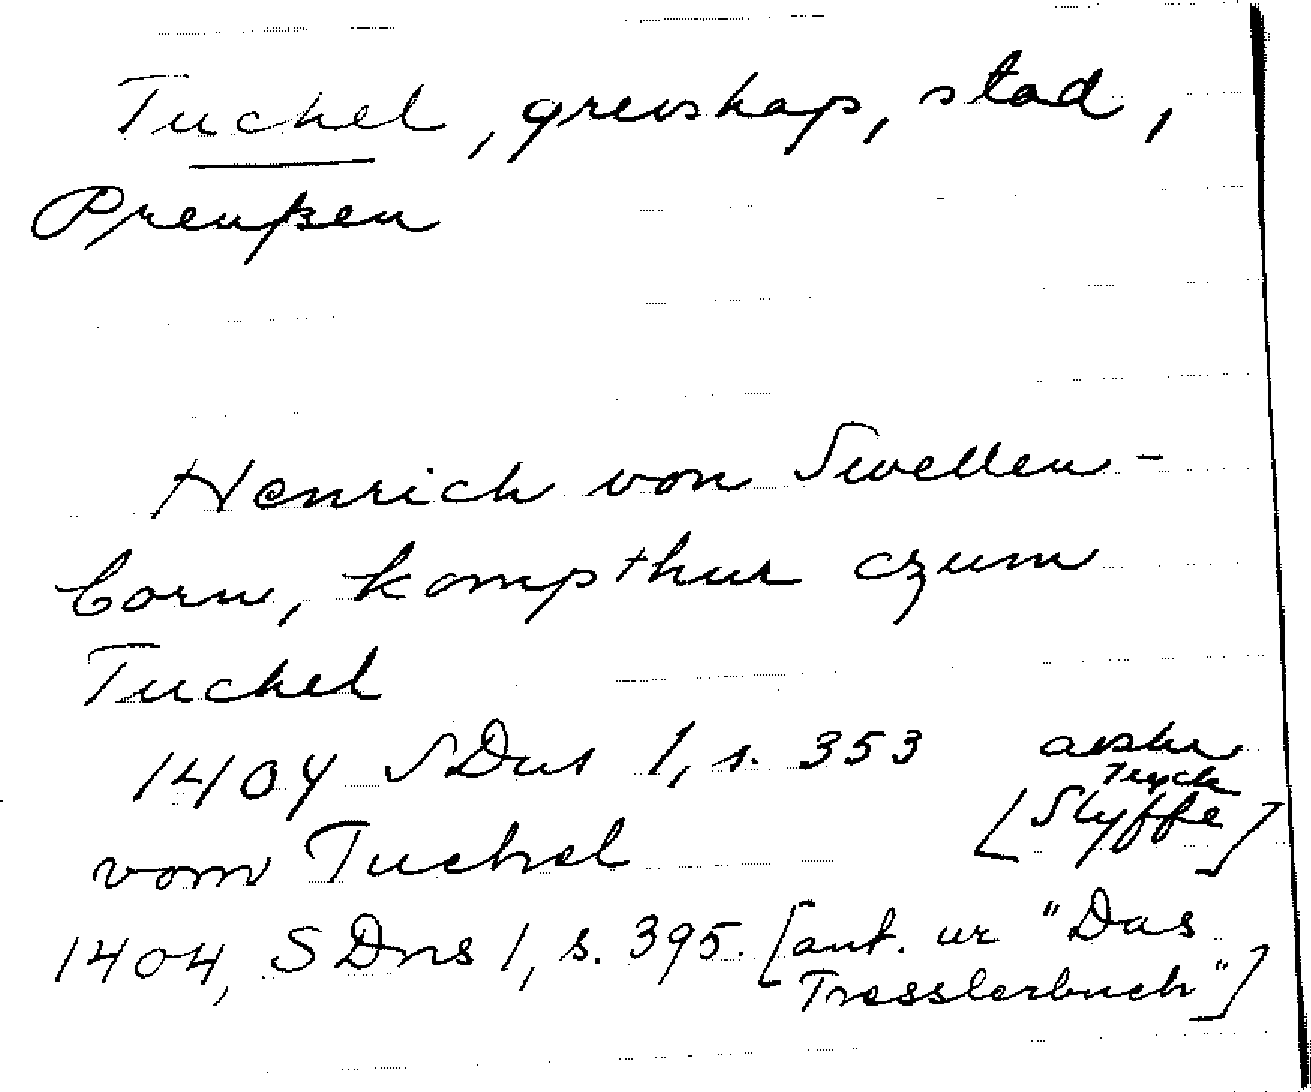 Tuchel, grevskap, stad,
Preußen
Henrich von Swellen-
born, kompthur czum
Tuchel
1404 SDns 1, s. 353
[Styffe]
vom Tuchel
1404, SDns 1, s. 395. [ant. ur "Das
Tresslerbuch"]